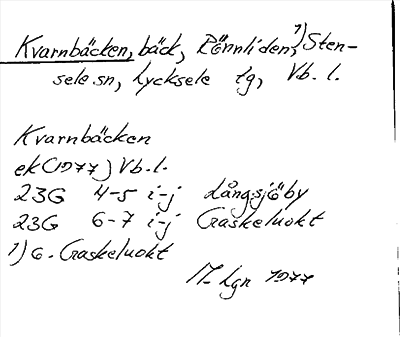 Kvarnbäcken, bäck, Rönnliden,¹) Sten-
sele sn, Lycksele tg, Vb. l.
Kvarnbäcken
ek (1977) Vb. l.
23G 4-5 i-j Långsjöby
23G 6-7 i-j Gaskeluokt
1) G. Gaskeluokt
1977